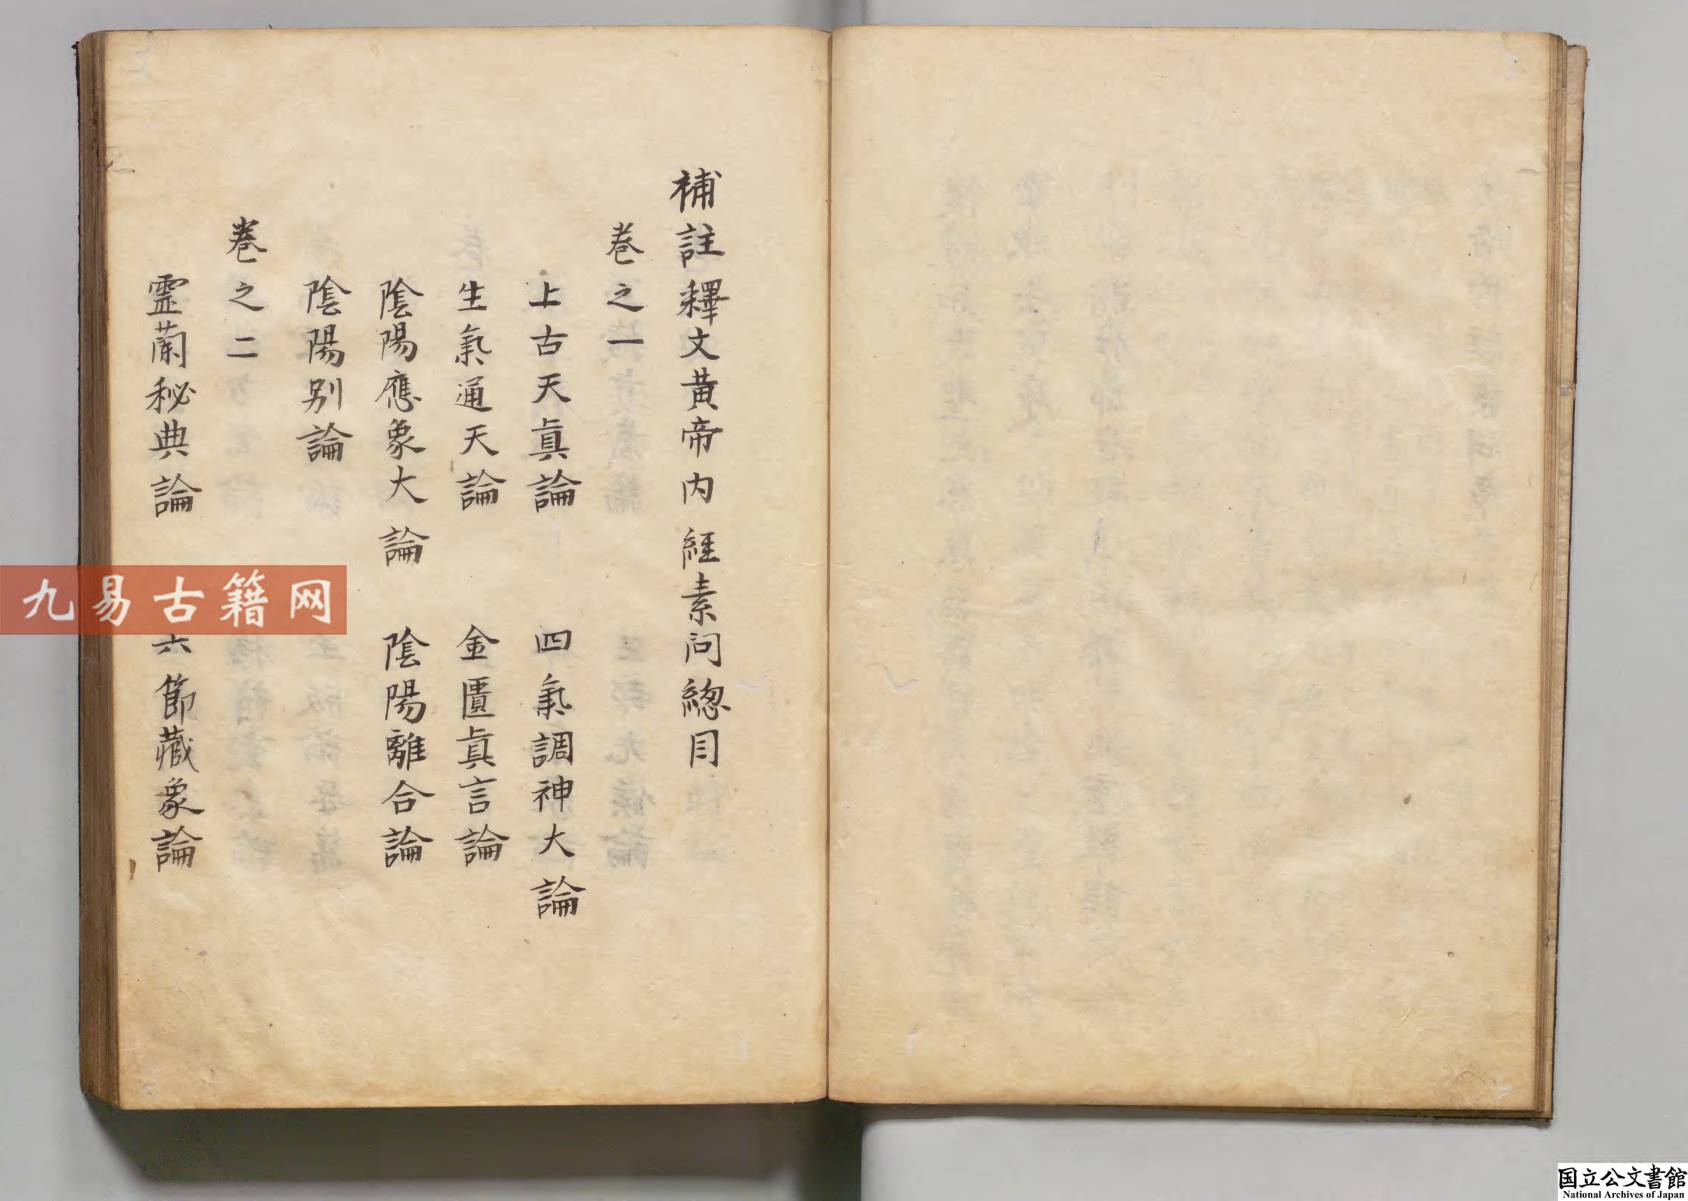 補註釋文黃帝内經素問緫目
卷之一
上古天眞論　四氣調神大論
生氣通天論　金匱眞言論
陰陽應象大論　陰陽離合論
陰陽别論
卷之二
靈蘭秘典論　六節藏象論
九易古籍网
国立公文書館
National Archives of Japan